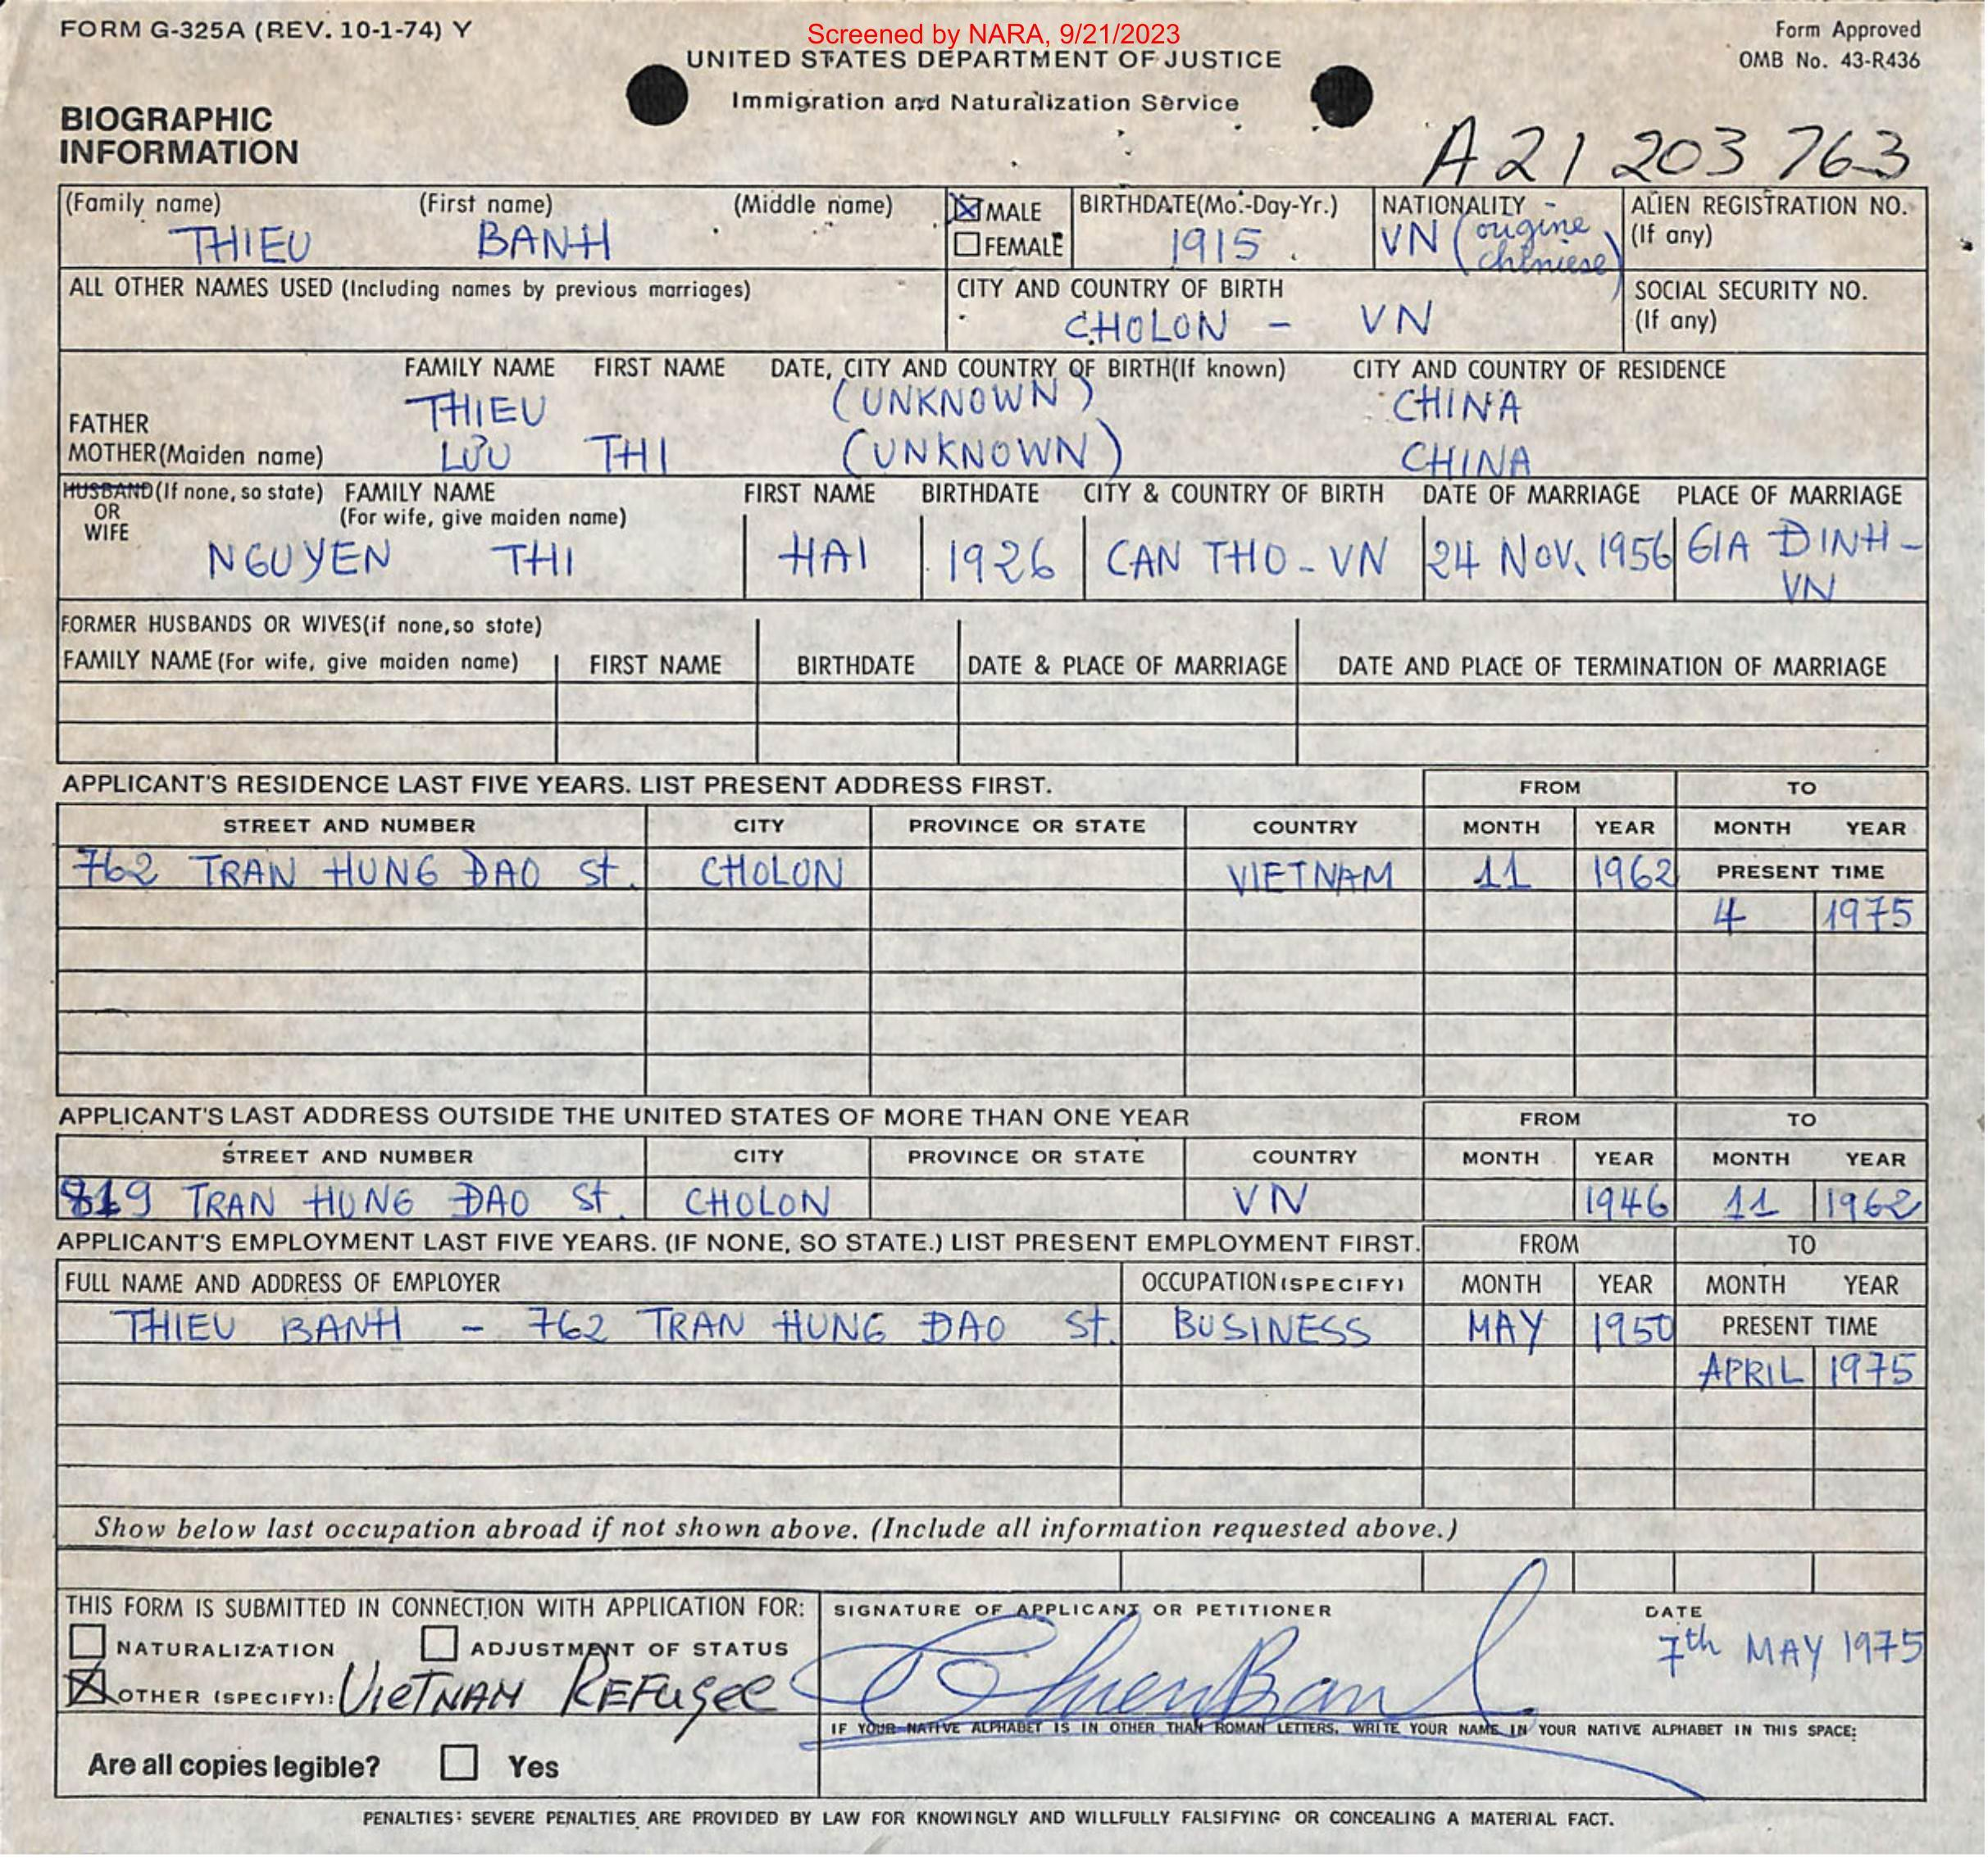 FORM G-325A (REV. 10-1-74) Y
Screened by NARA, 9/21/2023
Form Approved
OMB No. 43-R436
UNITED STATES DEPARTMENT OF JUSTICE
Immigration and Naturalization Service
BIOGRAPHIC
INFORMATION
A21 203 763
(Family name) (First name) (Middle name)
THIEU BANH
MALE
FEMALE
BIRTHDATE(Mo.-Day-Yr.)
1915
NATIONALITY
VN (origine
chiniese)
ALIEN REGISTRATION NO.
(If any)
ALL OTHER NAMES USED (Including names by previous marriages)
CITY AND COUNTRY OF BIRTH
CHOLON - VN
SOCIAL SECURITY NO.
(If any)
FAMILY NAME FIRST NAME DATE, CITY AND COUNTRY OF BIRTH(If known) CITY AND COUNTRY OF RESIDENCE
FATHER THIEU (UNKNOWN) CHINA
MOTHER(Maiden name) LƯU THI (UNKNOWN) CHINA
HUSBAND(If none, so state) FAMILY NAME FIRST NAME BIRTHDATE CITY & COUNTRY OF BIRTH DATE OF MARRIAGE PLACE OF MARRIAGE
OR (For wife, give maiden name)
WIFE
NGUYEN THI HAI 1926 CAN THO - VN 24 NOV. 1956 GIA ĐINH -
VN
FORMER HUSBANDS OR WIVES(if none,so state)
FAMILY NAME (For wife, give maiden name) FIRST NAME BIRTHDATE DATE & PLACE OF MARRIAGE DATE AND PLACE OF TERMINATION OF MARRIAGE
APPLICANT'S RESIDENCE LAST FIVE YEARS. LIST PRESENT ADDRESS FIRST. FROM TO
STREET AND NUMBER CITY PROVINCE OR STATE COUNTRY MONTH YEAR MONTH YEAR
762 TRAN HUNG ĐAO St. CHOLON VIETNAM 11 1962 PRESENT TIME
4 1975
APPLICANT'S LAST ADDRESS OUTSIDE THE UNITED STATES OF MORE THAN ONE YEAR FROM TO
STREET AND NUMBER CITY PROVINCE OR STATE COUNTRY MONTH YEAR MONTH YEAR
819 TRAN HUNG ĐAO St. CHOLON VN 1946 11 1962
APPLICANT'S EMPLOYMENT LAST FIVE YEARS. (IF NONE, SO STATE.) LIST PRESENT EMPLOYMENT FIRST. FROM TO
FULL NAME AND ADDRESS OF EMPLOYER OCCUPATION (SPECIFY) MONTH YEAR MONTH YEAR
THIEU BANH - 762 TRAN HUNG ĐAO St. BUSINESS MAY 1950 PRESENT TIME
APRIL 1975
Show below last occupation abroad if not shown above. (Include all information requested above.)
THIS FORM IS SUBMITTED IN CONNECTION WITH APPLICATION FOR:
NATURALIZATION ADJUSTMENT OF STATUS
OTHER (SPECIFY): VIETNAM REFUGEE
SIGNATURE OF APPLICANT OR PETITIONER
ThieuBanh
DATE
7th MAY 1975
IF YOUR NATIVE ALPHABET IS IN OTHER THAN ROMAN LETTERS, WRITE YOUR NAME IN YOUR NATIVE ALPHABET IN THIS SPACE:
Are all copies legible? Yes
PENALTIES: SEVERE PENALTIES ARE PROVIDED BY LAW FOR KNOWINGLY AND WILLFULLY FALSIFYING OR CONCEALING A MATERIAL FACT.